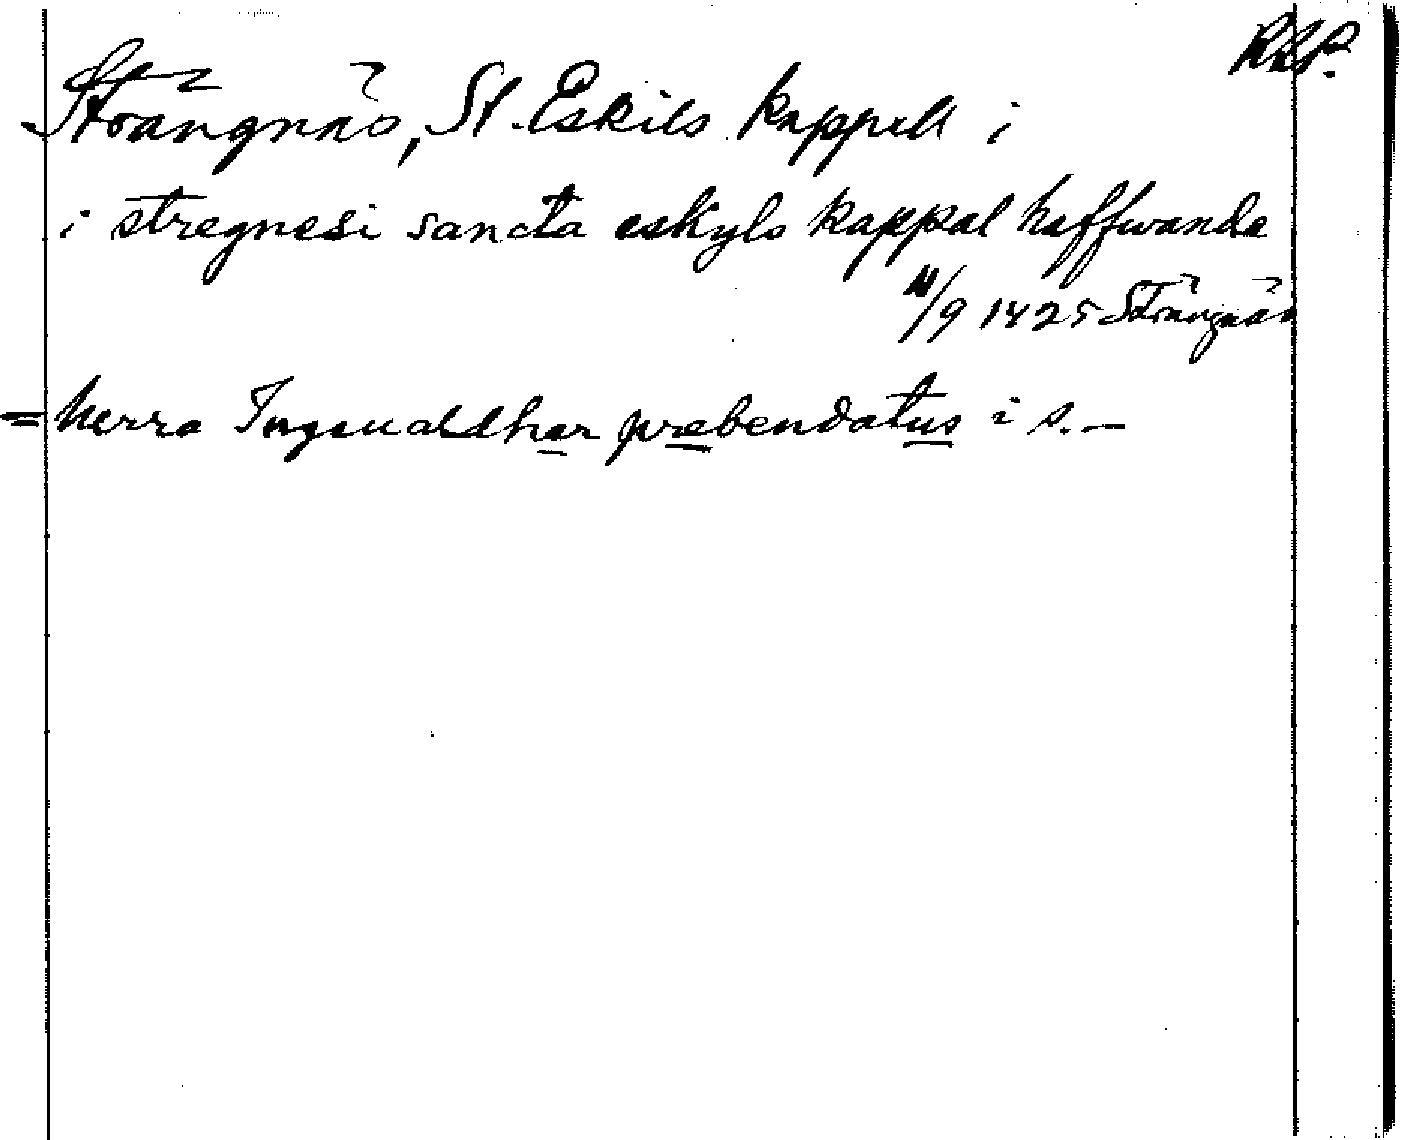 RAP.
Strängnäs, St. Eskils kappell i
i stregnesi sancta eskyls kappal haffwande
11/9 1425 Strängnäs
= herra Ingeualdhar prebendatus i s. —